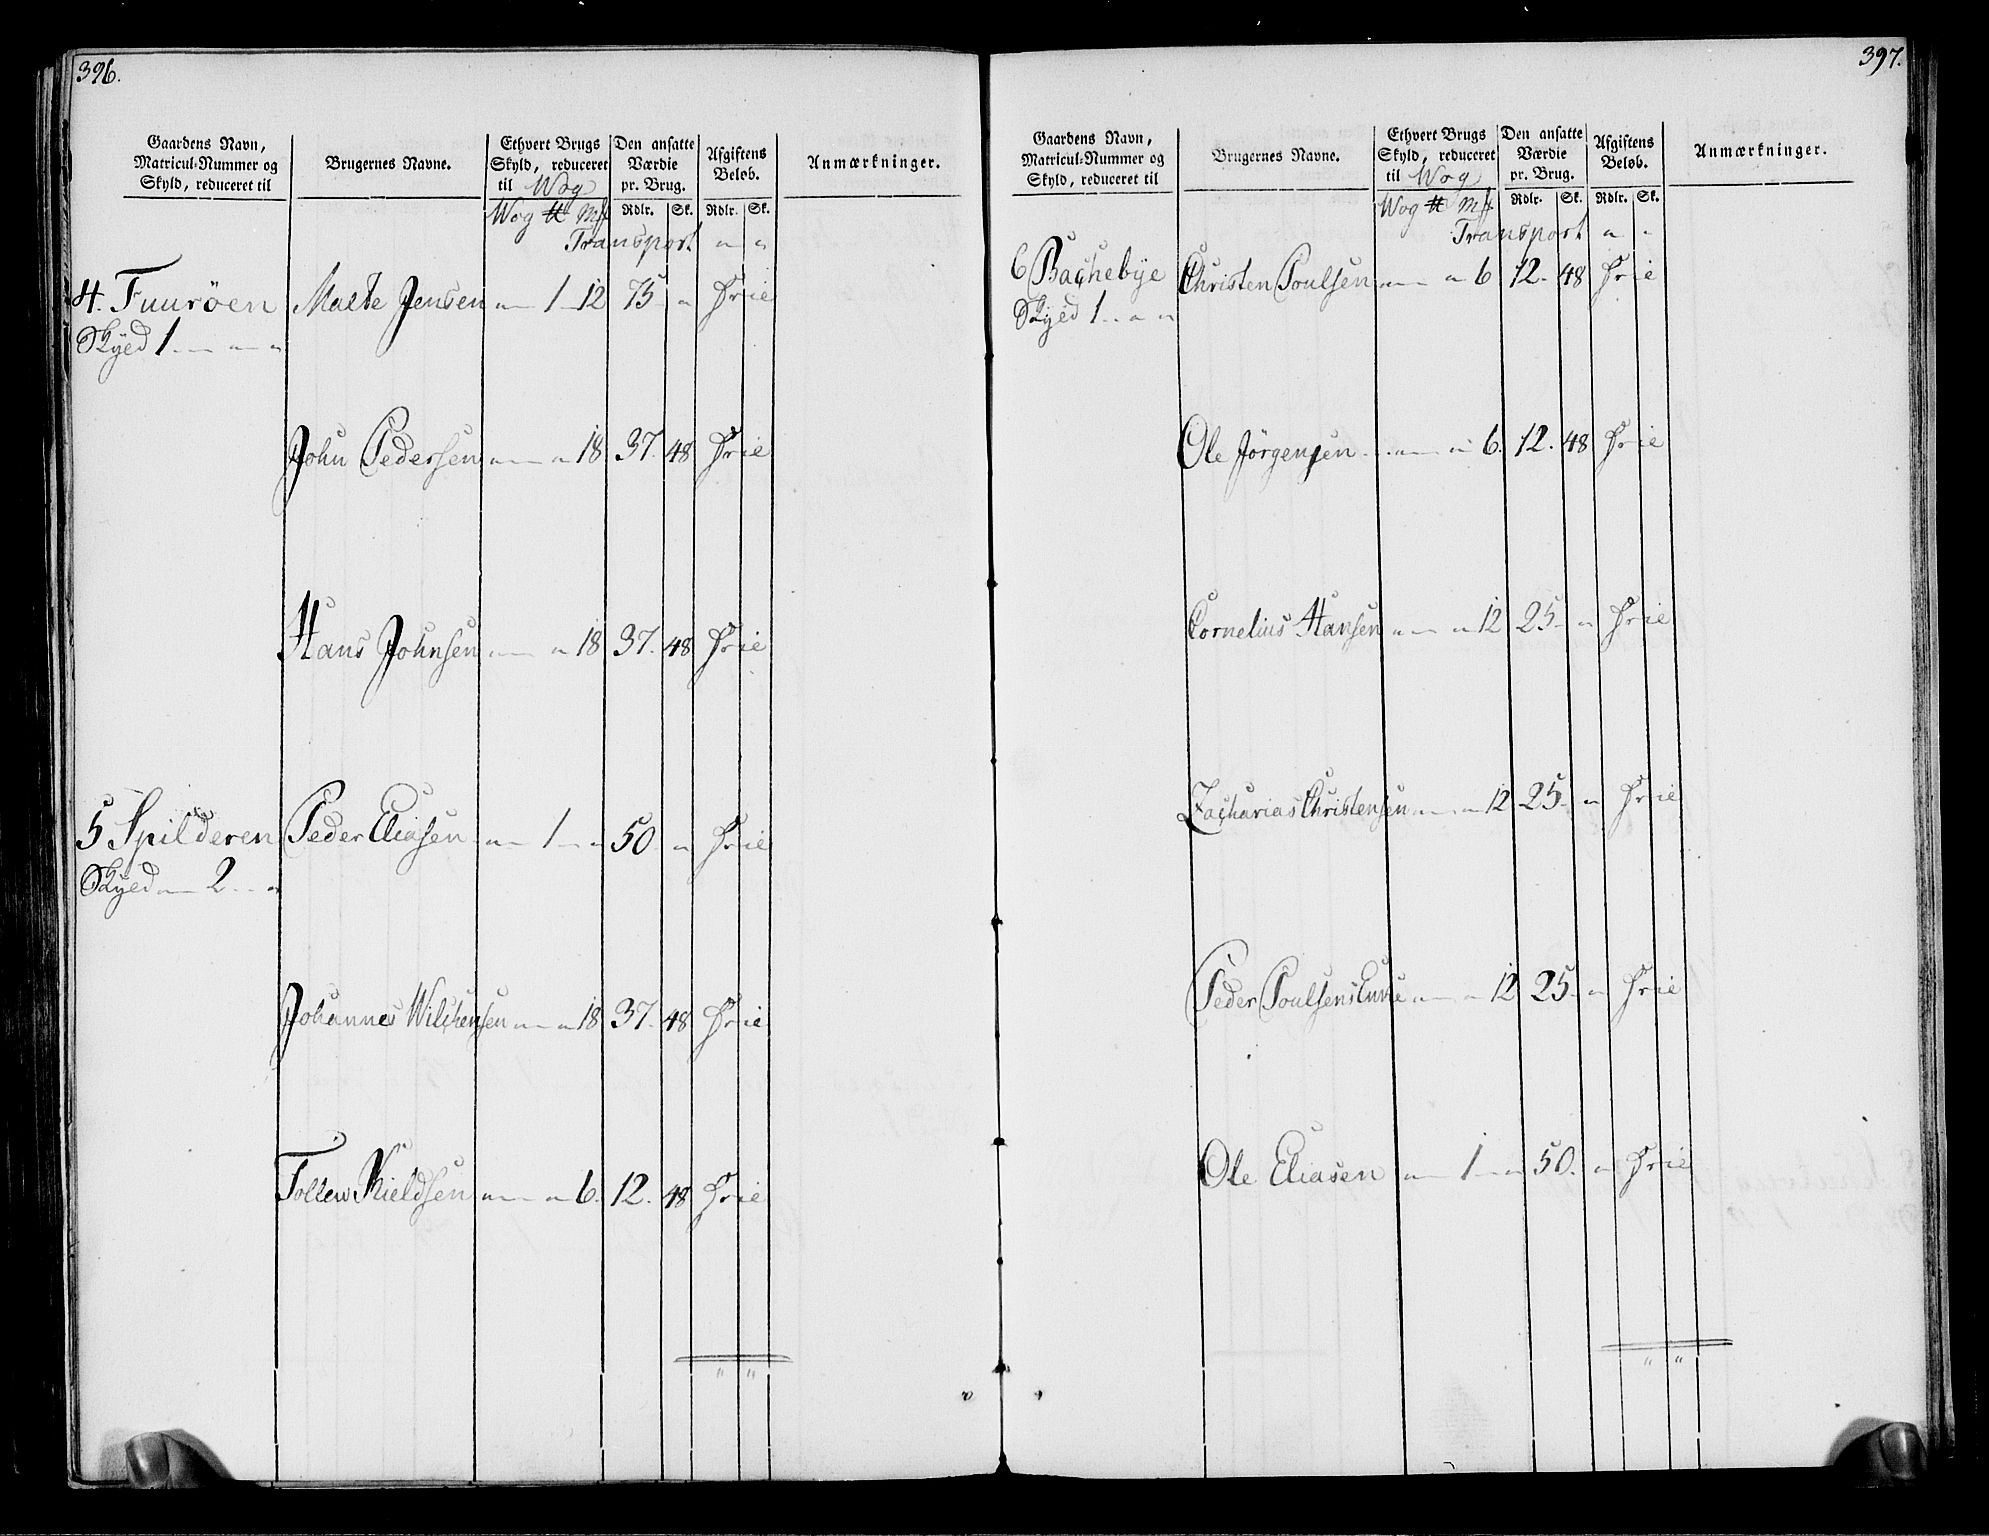 396.
Gaardens Navn, Matricul-Nummer og Skyld, reduceret til | Brugernes Navne. | Ethvert Brugs Skyld, reduceret til Wog | Den ansatte Værdie pr. Brug. | Afgiftens Beløb. | Anmærkninger.
Wog ℔ Mk | Rdlr. | Sk. | Rdlr. | Sk.
Transport " "
4. Fuurøen Malte Jensen " 1 12 75 " Frie
Skyld 1 " "
John Pedersen " " 18 37. 48 Frie
Hans Johnsen " " 18 37. 48 Frie
5 Spilderen Peder Eliasen " 1 " 50 " Frie
Skyld " 2 "
Johannes Wilchensen " " 18 37. 48 Frie
Tollew Kieldsen " " 6. 12. 48 Frie
" "
397.
Gaardens Navn, Matricul-Nummer og Skyld, reduceret til | Brugernes Navne. | Ethvert Brugs Skyld, reduceret til Wog | Den ansatte Værdie pr. Brug. | Afgiftens Beløb. | Anmærkninger.
Wog ℔ Mk | Rdlr. | Sk. | Rdlr. | Sk.
Transport " "
6 Bachebye Christen Poulsen " " 6 12. 48 Frie
Skyld 1 " "
Ole Jörgensen " " 6. 12. 48 Frie
Cornelius Hansen " " 12 25 " Frie
Zacharias Christensen " " 12 25 " Frie
Peder Poulsens Enke " " 12 25 " Frie
Ole Eliasen " 1 " 50. " Frie
" "